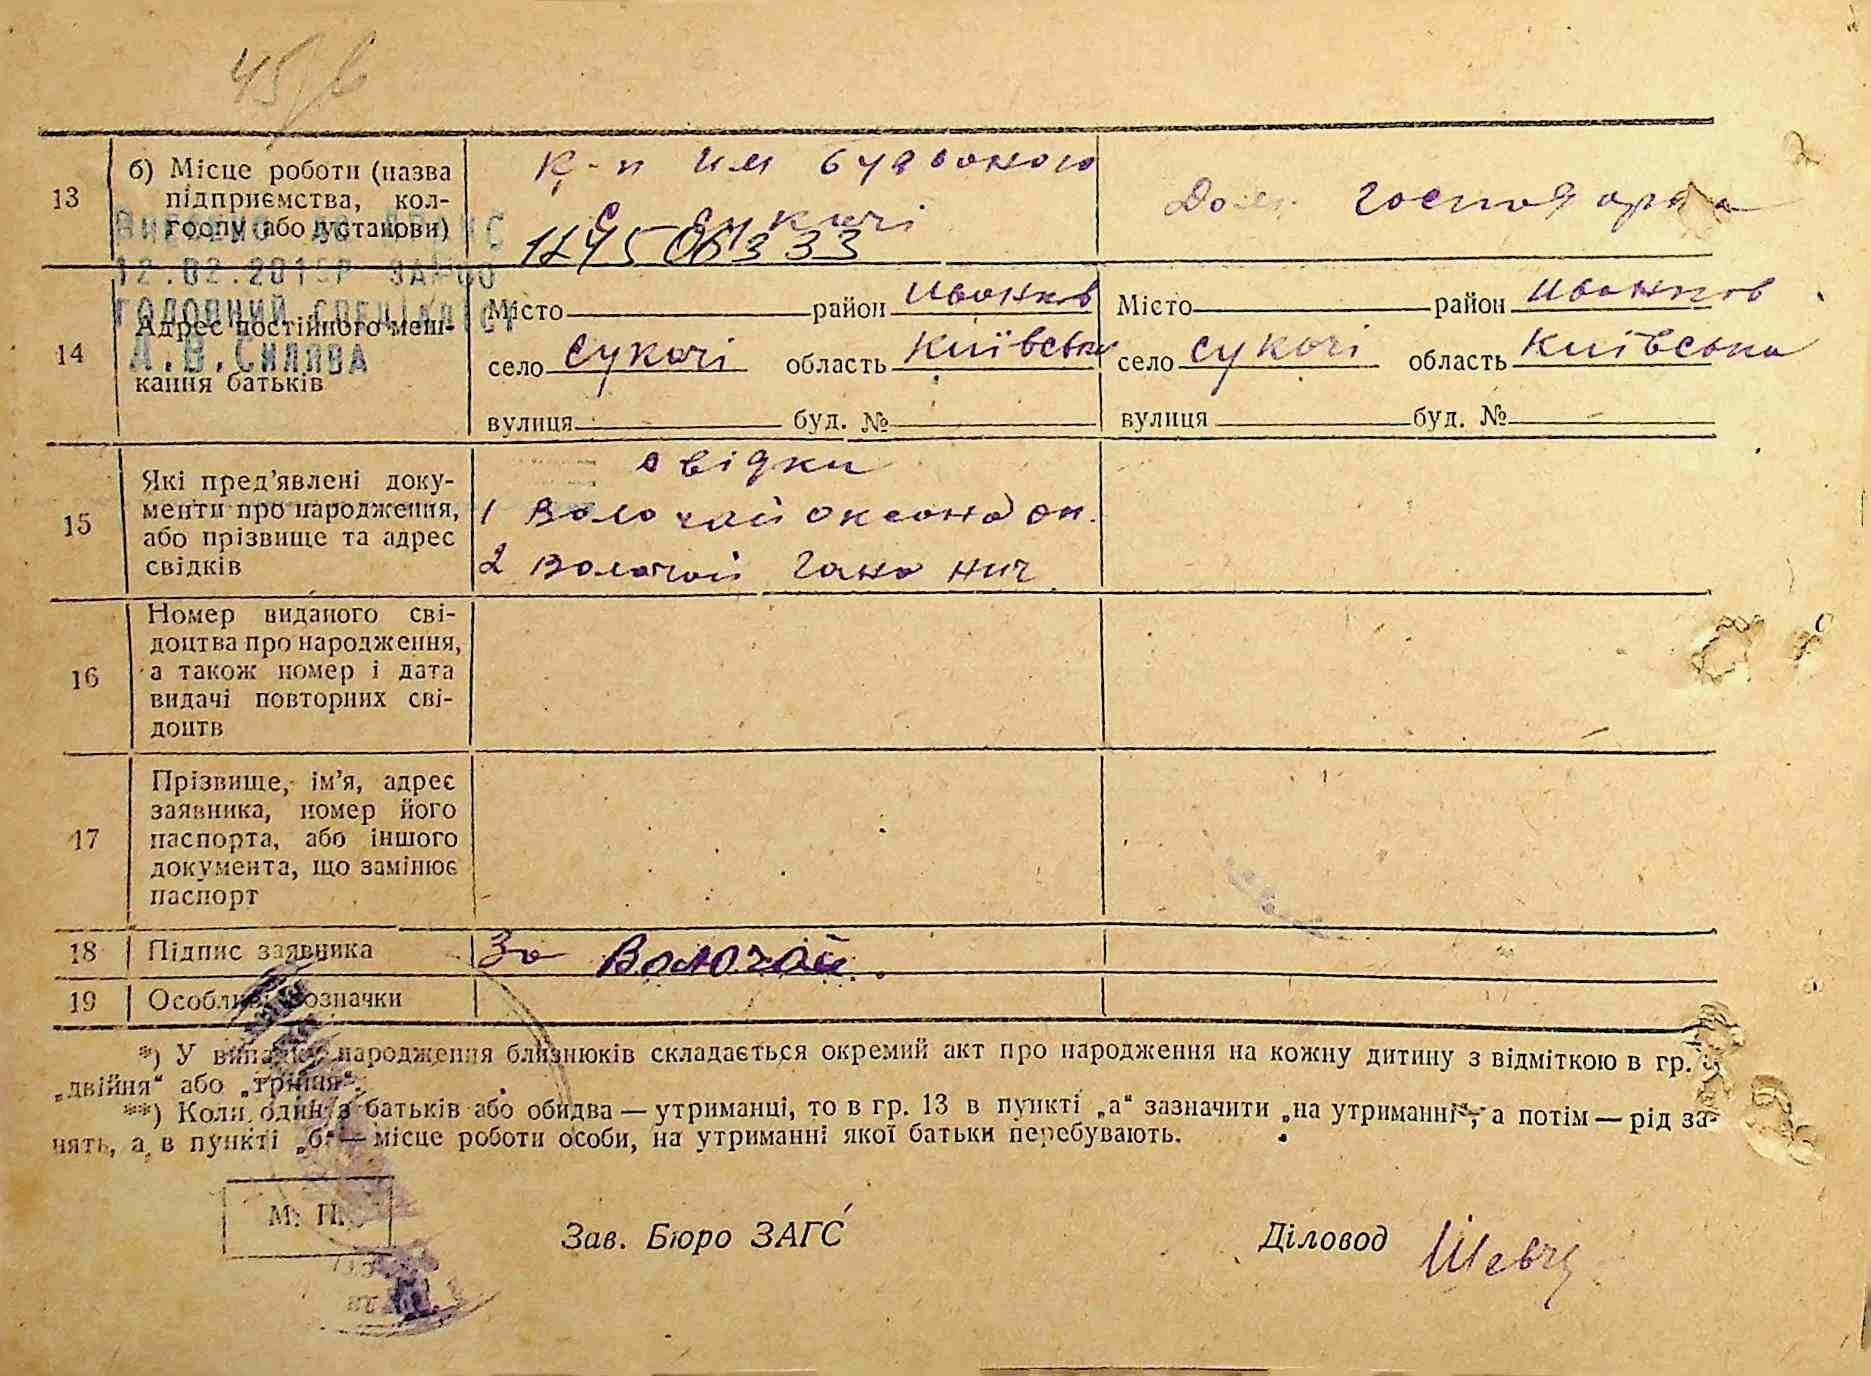 45
13
б) Місце роботи (назва
підприємства, кол-
госпу або установи)
К-п им будьоного
с Сукачі
Дом. господарка
ВНЕСЕНО ДО ДРАЦС
12.02.2015Р
ГОЛОВНИЙ СПЕЦІАЛІСТ
14
Адрес постійного меш-
кання батьків
Місто район Иванков
село Сукачі область Київська
вулиця буд. №
Місто район Иванков
село Сукачі область Київська
вулиця буд. №
15
Які пред'явлені доку-
менти про народження,
або прізвище та адрес
свідків
свідки
1 Волочай оксана он.
2 Волочай гана нич
16
Номер виданого сві-
доцтва про народження,
а також номер і дата
видачі повторних сві-
доцтв
17
Прізвище, ім'я, адрес
заявника, номер його
паспорта, або іншого
документа, що замінює
паспорт
18
Підпис заявника
За Волочай.
19
Особливі позначки
*) У випадку народження близнюків складається окремий акт про народження на кожну дитину з відміткою в гр.
„двійня“ або „трійня“.
**) Коли один з батьків або обидва — утриманці, то в гр. 13 в пункті „а“ зазначити „на утриманні“, а потім — рід за-
нять, а в пункті „б“ — місце роботи особи, на утриманні якої батьки перебувають.
М. П.
Зав. Бюро ЗАГС
Діловод